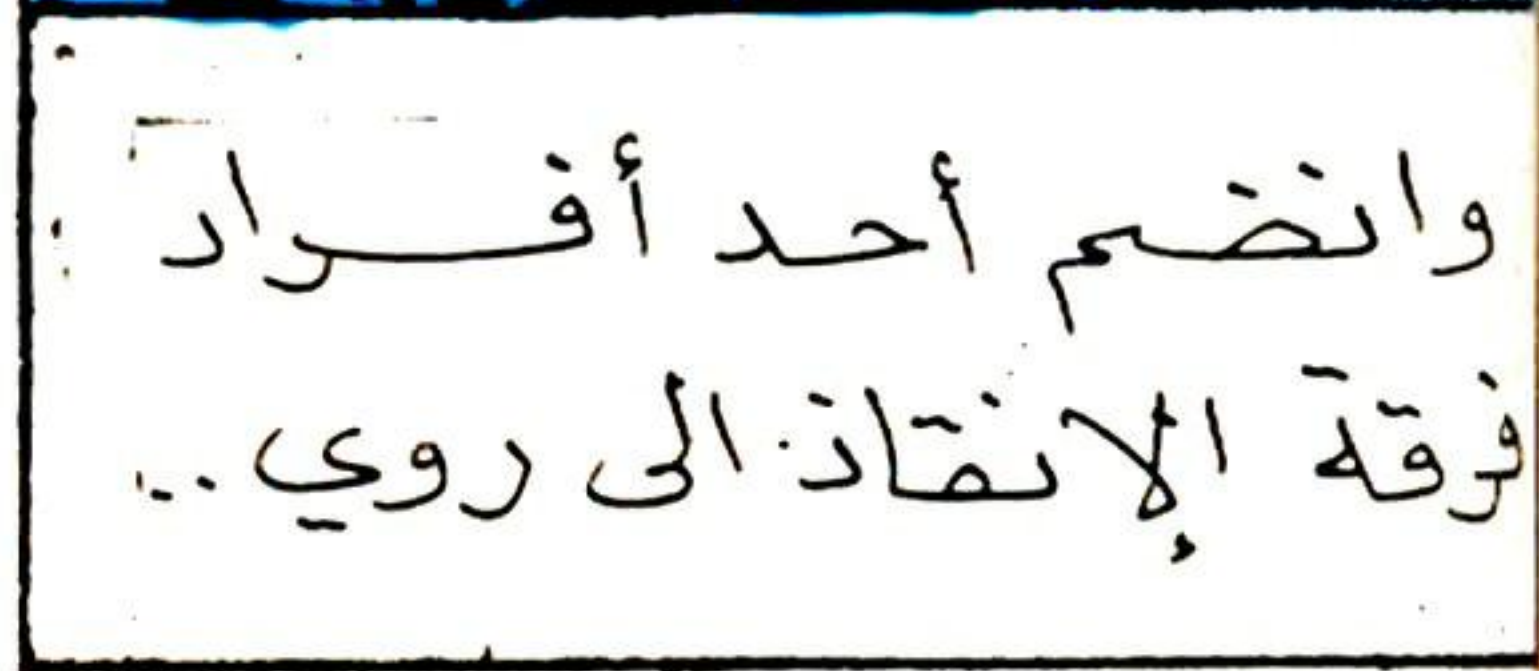 وانضم أحد أفراد
فرقة الإنقاذ الى روي ..